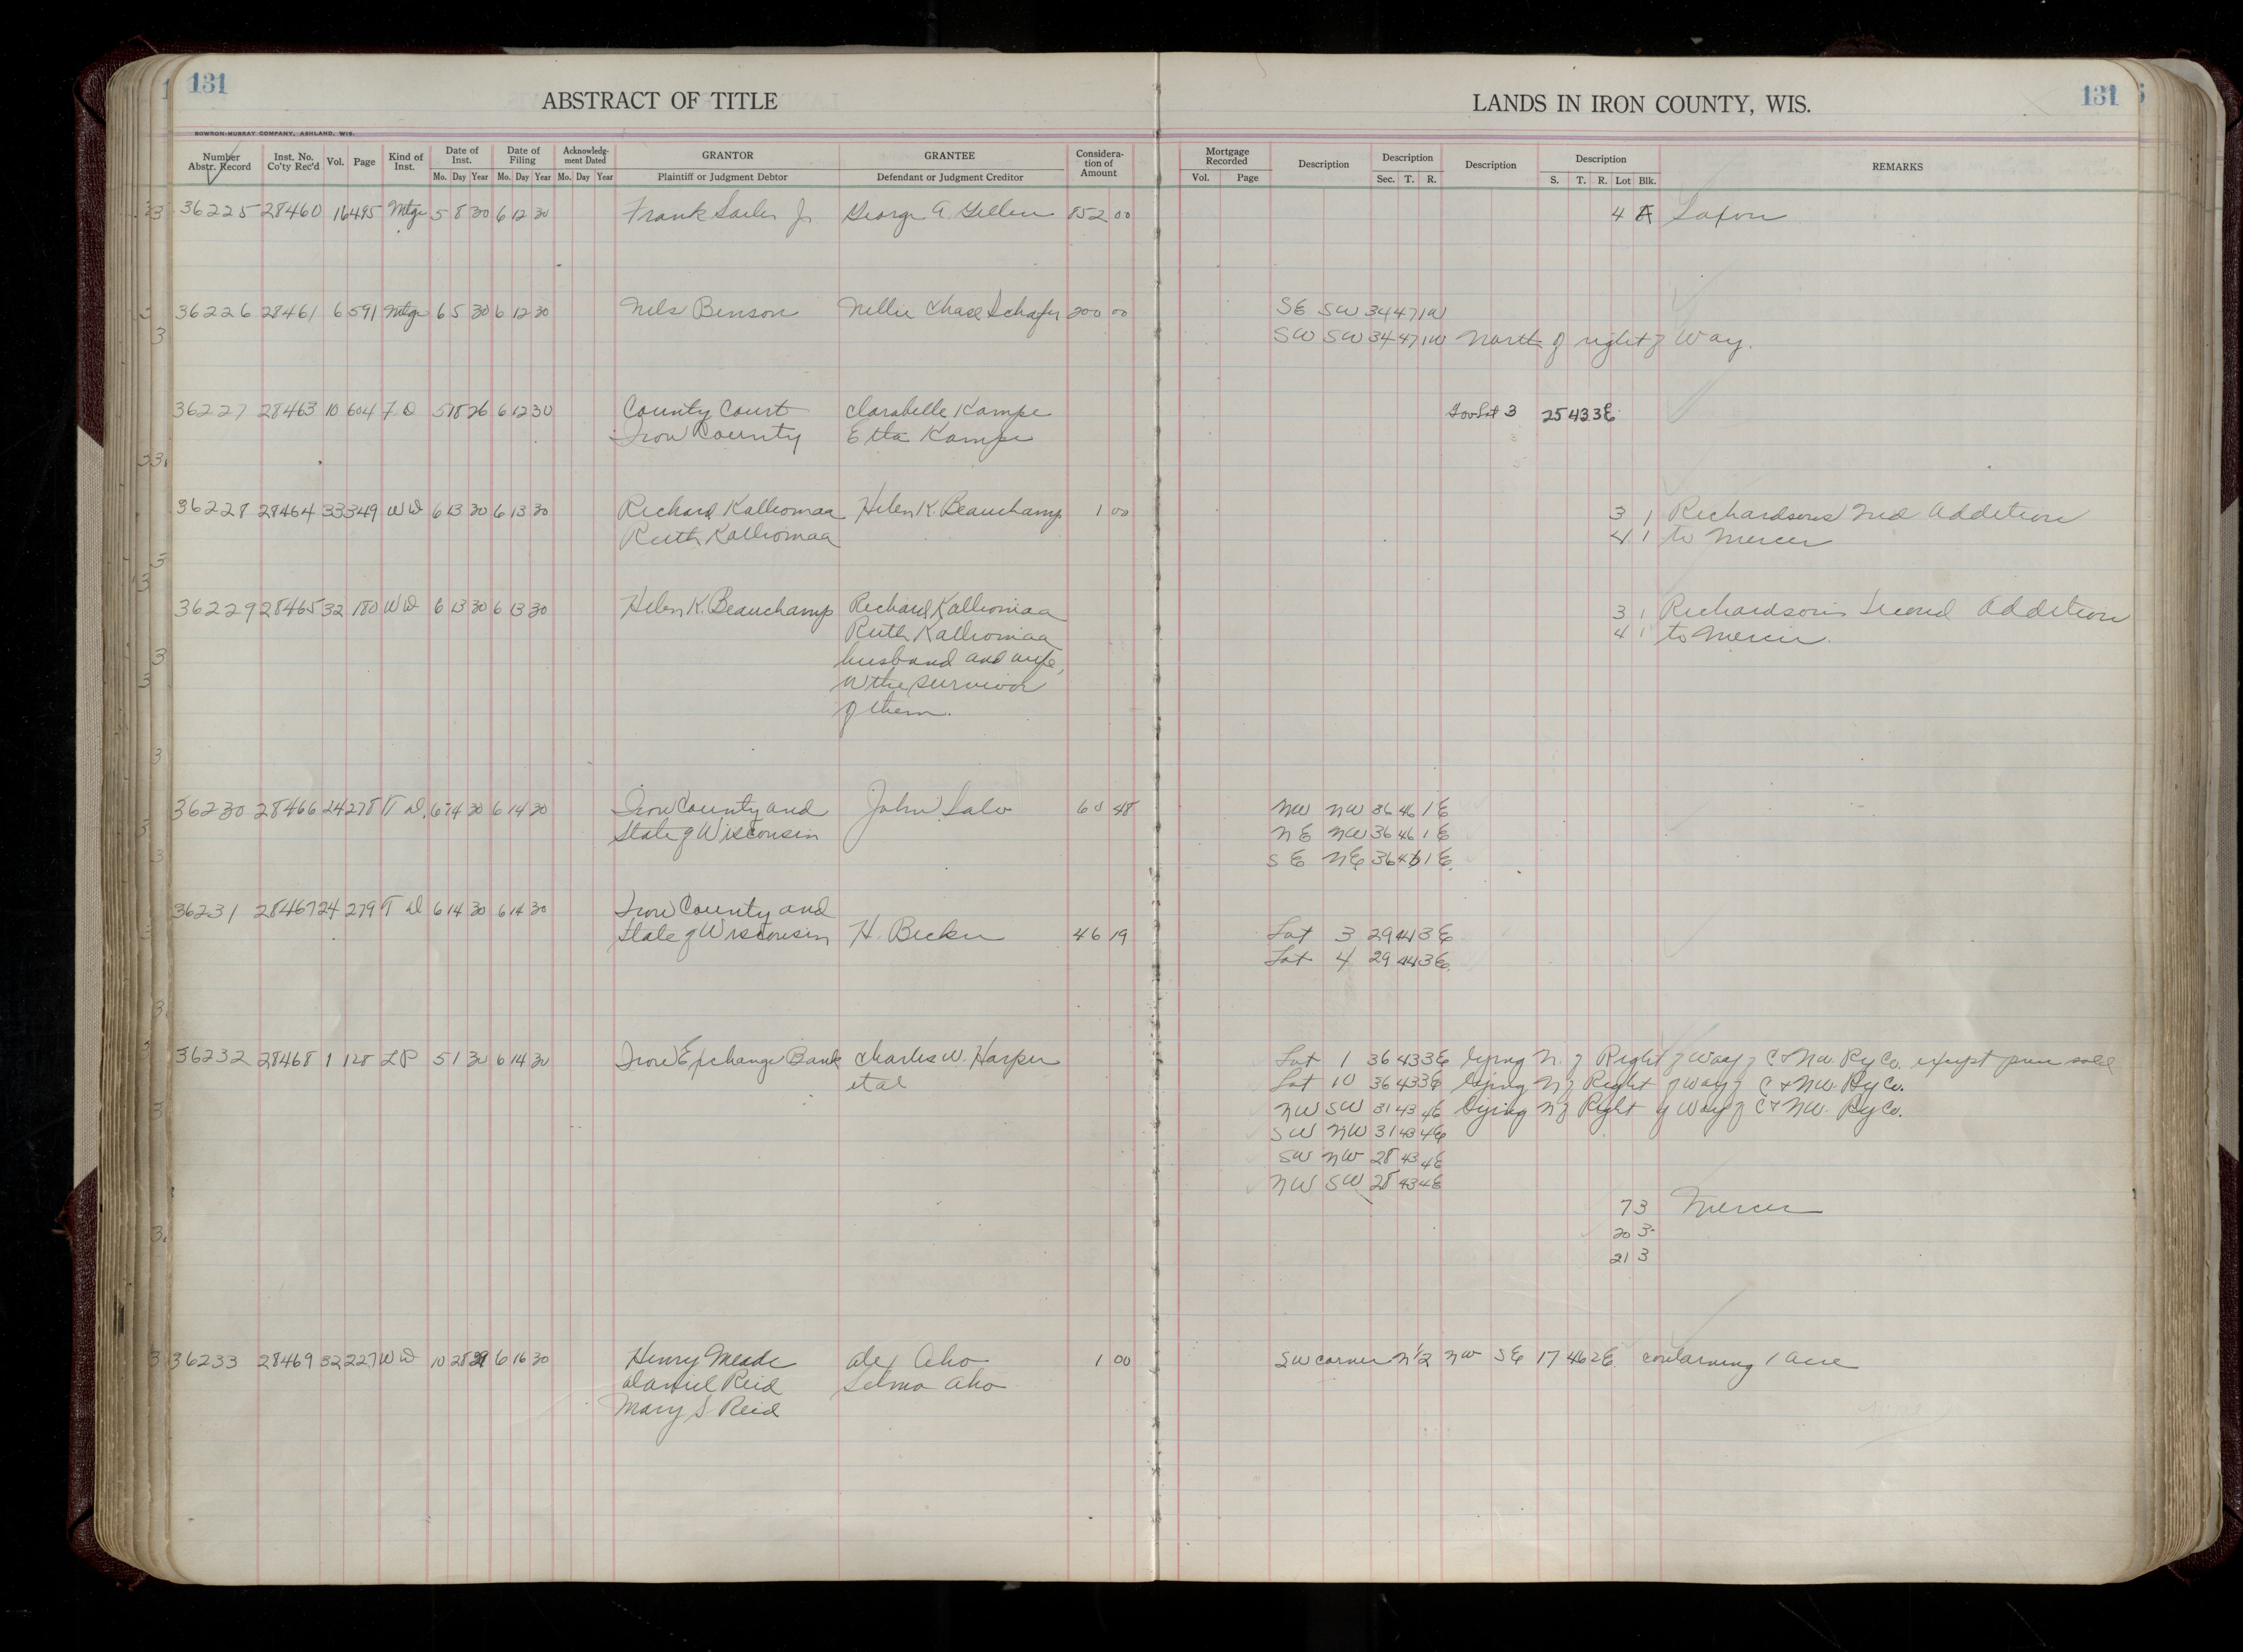 131
ABSTRACT OF TITLE
LANDS IN IRON COUNTY, WIS.
131
BOWRON-MURRAY COMPANY, ASHLAND, WIS.
Number Abstr. Record Inst. No. Co'ty Rec'd Vol. Page Kind of Inst. Date of Inst. Mo. Day Year Date of Filing Mo. Day Year Acknowledg-ment Dated Mo. Day Year GRANTOR Plaintiff or Judgment Debtor GRANTEE Defendant or Judgment Creditor Considera-tion of Amount Mortgage Recorded Vol. Page Description Description Sec. T. R. Description Description S. T. R. Lot Blk. REMARKS
36225 28460 16 495 Mtge 5 8 30 6 12 30 Frank Jr George A. 852 00 4 A Saxon
36226 28461 6 591 Mtge 6 5 30 6 12 30 Nels Benson Nellie Chase Schafer 200 00 SE SW 34 47 1W
SW SW 34 47 1W North of right of Way.
36227 28463 10 604 F D 5 18 26 6 12 30 County Court Clarabelle Kampe Gov Lot 3 25 43 3E
Iron County Etta Kampe
36228 28464 33 349 W D 6 13 30 6 13 30 Richard Kalliomaa Helen K. Beauchamp 1 00 3 1 Richardsons 2nd Addition
Ruth Kalliomaa 4 1 to Mercer
36229 28465 32 180 W D 6 13 30 6 13 30 Helen K. Beauchamp Richard Kalliomaa 3 1 Richardson's Second Addition
Ruth Kalliomaa 4 1 to Mercer.
husband and wife,
or the survivor
of them.
36230 28466 24 278 T D. 6 14 30 6 14 30 Iron County and John Salo 48 NW NW 36 46 1E
State of Wisconsin NE NW 36 46 1E
SE NE 36 46 1E
36231 28467 24 279 T D 6 14 30 6 14 30 Iron County and
State of Wisconsin H. Becker 46 19 Lot 3 29 44 3E
Lot 4 29 44 3E
36232 28468 1 128 L P 5 1 30 6 14 30 Iron Exchange Bank Charles W. Harper Lot 1 36 43 3E lying N. of Right of Way of C & NW. Ry Co. except sold
et al Lot 10 36 43 3E lying N of Right of Way of C & NW. Ry Co.
NW SW 31 43 4E lying N of Right of Way of C & NW. Ry Co.
SW NW 31 43 4E
SW NW 28 43 4E
NW SW 28 43 4E
7 3 Mercer
20 3
21 3
36233 28469 32 227 W D 10 28 29 6 16 30 Henry Meade Alex Aho 1 00 SW corner N 1/2 NW SE 17 46 2E containing 1 acre
Daniel Reid Selma Aho
Mary S. Reid